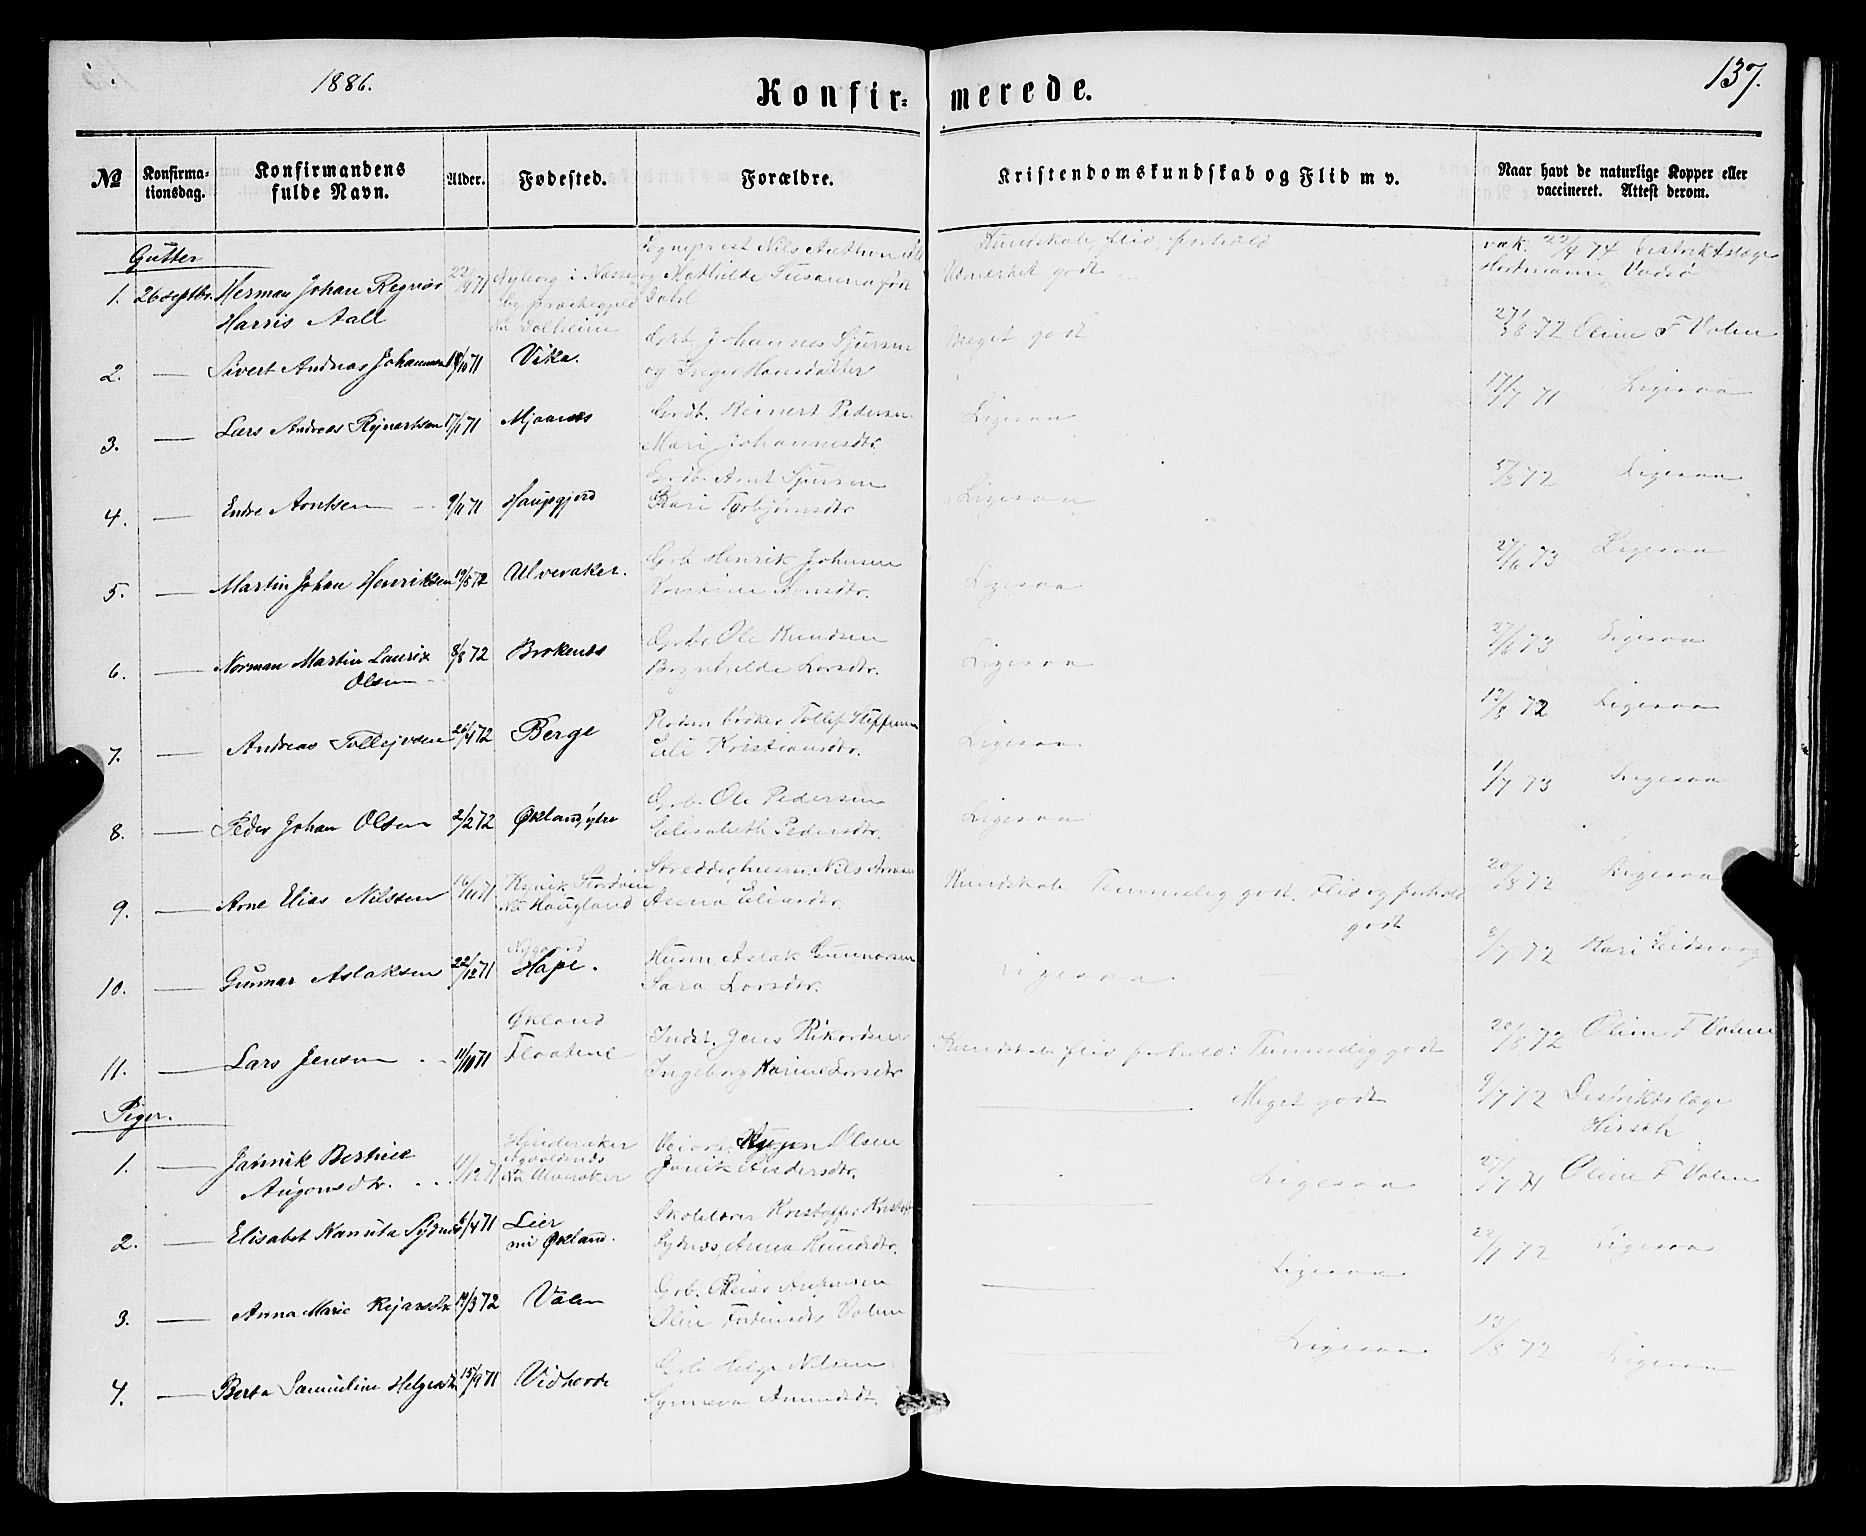 1886.
Konfir= merede.
137.
№
Konfirma-
tionsdag.
Konfirmandens
fulde Navn.
Alder.
Fødested.
Forældre.
Kristendomskundskab og Flid m v.
Naar havt de naturlige Kopper eller
vaccineret. Attest derom.
Gutter
1. 26 septbr. Herman Johan Regnior
Harris Aall
22/4 71
og Mathilde Susanna født
Dahl
Kundskab, flid, forhold
Udmerket godt
vak. 22/4 74 Distriktslæge
Vadsø
2. — Sivert Andreas Johannesen
/10 71 Vika.
Grb. Johannes Sjursen
og Inger Hansdatter
Meget godt
27/8 72 Oline F Valen
3. — Lars Andreas Rejnertsen 17/1 71 Mjaanes
Grdb. Reinert Pedersen
Mari Johannesdtr.
Ligesaa
17/7 71 Ligesaa
4. — Endre Arntsen 9/11 71 Haupgjerd
Grdb. Arnt Sjursen
Kari Torbjørnsdtr
Ligesaa
5/8 72 Ligesaa
5. — Martin Johan Henriksen 19/5 72 Ulveraker.
Grb Henrik Johnsen
Ligesaa
27/6 73 Ligesaa
6. — Norman Martin Laurik
Olsen
8/8 72 Brokenes
Grb. Ole Knudsen
Larsdtr.
Ligesaa
27/6 73 Ligesaa
7. — Andreas Tollejvsen 26/4 72 Berge
Tollef Steffensen
Eli Kristiansdtr.
Ligesaa
13/8 72 Ligesaa
8. — Peder Johan Olsen 2/2 72 Økland, ytre
Grb. Ole Pedersen
Elisabeth Pedersdtr.
Ligesaa
1/7 73 Ligesaa
9. — Arne Elias Nilssen 16/11 71
Nu Haugland
Nils Arnesen
Anna Eliasdtr.
Kundskab Temmelig godt, Flid og forhold
godt
20/8 72 Ligesaa
10. — Gunnar Aslaksen 22/12 71
Nygaard
Hape.
Husm. Aslak Gunnarsen
Sara Larsdtr.
Ligesaa
8/7 72 Kari Eidsvaag
11. — Lars Jensen 11/10 71
Økland
Floatene
Inds. Jens Rikardsen
Ingeborg Karine Larsdtr
Kundskab flid forhold: Temmelig godt
20/8 72 Oline F Valen
Piger.
1. — Jannik Bertine
Augonsdtr.
11/12 71
Hinderaker
nu Ulveraker
Olsen
Janik Andersdtr.
— Meget godt
9/7 72 Distriktslæge
Hirsch
2. — Elisabet Kanuta Sydnes 6/4 71
Leer
nu Økland.
Skolelærer Kristoffer
Sydnes, Anna Knudsdtr.
— Ligesaa
27/7 71 Oline F Valen
3. — Anna Marie Rejarsdtr 19/3 72 Valen
Oline Valen
— Ligesaa
22/1 72 Ligesaa
4. — Berta Samueline Helgesdtr 15/9 71 Vidhovde
Grb Helge Nilsen
Synneva Amundsdtr.
— Ligesaa
13/8 72 Ligesaa